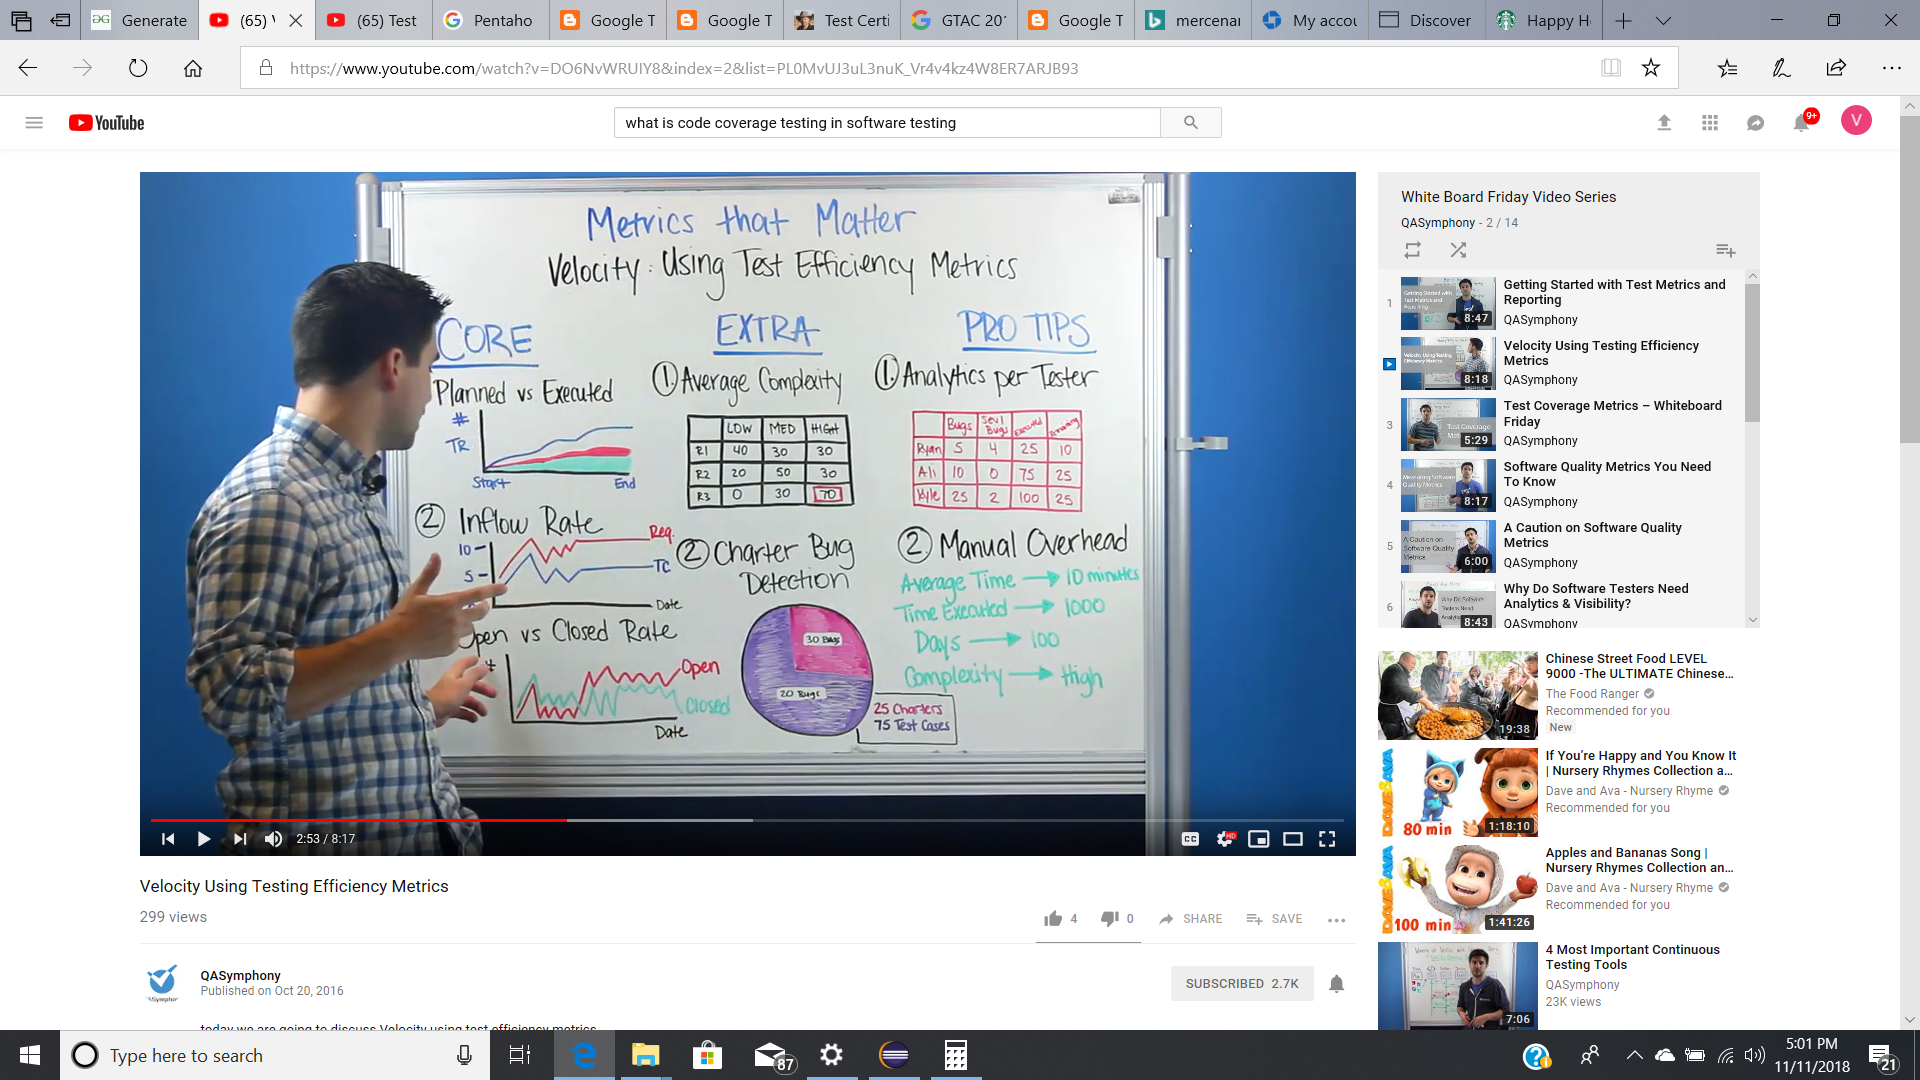 Generate
(65) V
(65) Test
Pentaho
Google T
Google T
Test Certi
GTAC 201
Google T
mercenar
My accou
Discover
Happy H
https://www.youtube.com/watch?v=DO6NvWRUIY8&index=2&list=PL0MvUJ3uL3nuK_Vr4v4kz4W8ER7ARJB93
YouTube
what is code coverage testing in software testing
9+
V
Metrics that Matter
Velocity: Using Test Efficiency Metrics
CORE
Planned vs Executed
#
TR
Start
End
② Inflow Rate
10
5
Req.
TC
Date
Open vs Closed Rate
#
Open
Closed
Date
EXTRA
① Average Complexity
LOW MED HIGH
R1 40 30 30
R2 20 50 30
R3 0 30 70
② Charter Bug
Detection
30 Bugs
20 Bugs
25 Charters
75 Test Cases
PRO TIPS
① Analytics per Tester
Bugs Sev1 Bugs Executed Remaining
Ryan 5 4 25 10
Ali 10 0 75 25
Kyle 25 2 100 25
② Manual Overhead
Average Time → 10 minutes
Time Executed → 1000
Days → 100
Complexity → High
2:53 / 8:17
CC
HD
Velocity Using Testing Efficiency Metrics
299 views
4
0
SHARE
SAVE
QASymphony
Published on Oct 20, 2016
SUBSCRIBED 2.7K
today we are going to discuss Velocity using test efficiency metrics
White Board Friday Video Series
QASymphony - 2 / 14
1
8:47
Getting Started with Test Metrics and
Reporting
QASymphony
8:18
Velocity Using Testing Efficiency
Metrics
QASymphony
3
5:29
Test Coverage Metrics – Whiteboard
Friday
QASymphony
4
8:17
Software Quality Metrics You Need
To Know
QASymphony
5
6:00
A Caution on Software Quality
Metrics
QASymphony
6
8:43
Why Do Software Testers Need
Analytics & Visibility?
QASymphony
19:38
Chinese Street Food LEVEL
9000 -The ULTIMATE Chinese...
The Food Ranger
Recommended for you
New
DAVE & AVA
80 min
1:18:10
If You're Happy and You Know It
| Nursery Rhymes Collection a...
Dave and Ava - Nursery Rhyme
Recommended for you
DAVE & AVA
100 min
1:41:26
Apples and Bananas Song |
Nursery Rhymes Collection an...
Dave and Ava - Nursery Rhyme
Recommended for you
7:06
4 Most Important Continuous
Testing Tools
QASymphony
23K views
Type here to search
87
5:01 PM
11/11/2018
21